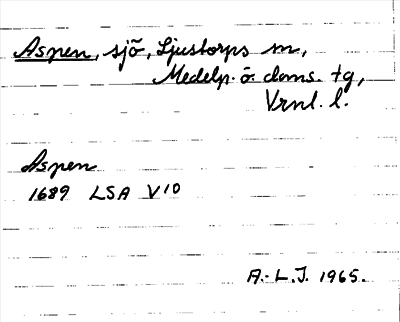 Aspen, sjö, Ljustorps sn,
Medelp. ö. doms. tg,
Vrnl. l.
Aspen
1689 LSA V10
A.-L.J. 1965.